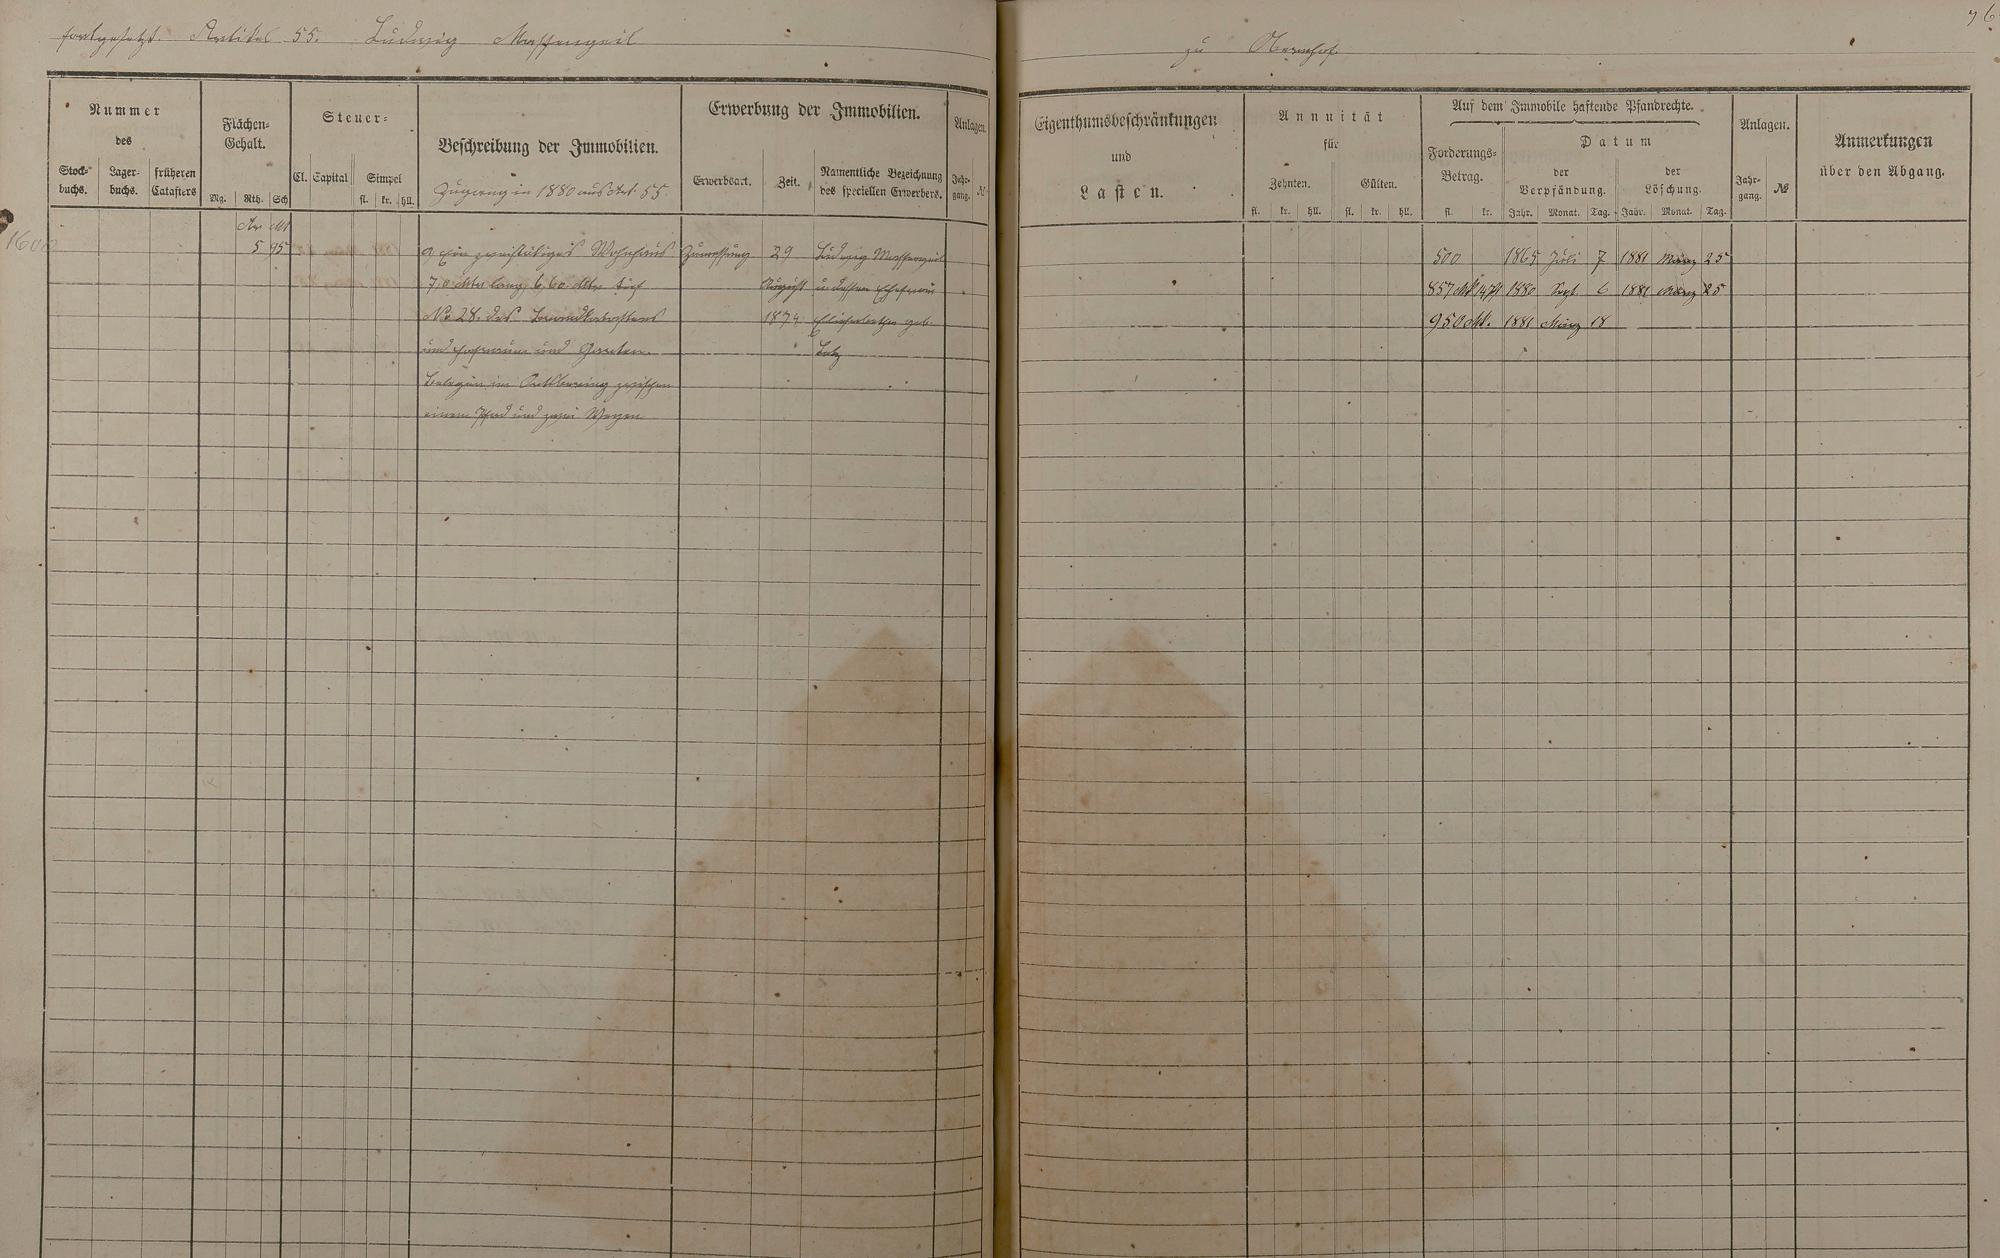 fortgesetzt. Artikel 55. Ludwig Massengeil
zu Obernhof
76
Nummer
des
Stock-
buchs.
Lager-
buchs.
früheren
Catasters
Flächen-
Gehalt.
Mg. Rth. Sch
Steuer-
Cl. Capital Simpel
fl. kr. hll.
Beschreibung der Immobilien.
Zugang in 1880 aus Art. 55.
Erwerbung der Immobilien.
Erwerbsart. Zeit.
Namentliche Bezeichnung
des speciellen Erwerbers.
Anlagen.
Jahr-
gang. №
Eigenthumsbeschränkungen
und
Lasten.
Annuität
für
Zehnten. Gülten.
fl. kr. hll. fl. kr. hll.
Auf dem Immobile haftende Pfandrechte.
Forderungs-
Betrag.
fl. kr.
Datum
der
Verpfändung.
Jahr. Monat. Tag.
der
Löschung.
Jahr. Monat. Tag.
Anlagen.
Jahr-
gang. №
Anmerkungen
über den Abgang.
Ar Mt
1600
5 95 a Ein zweistöckiges Wohnhaus Zumessung 29 Ludwig Massengeil 500 1865 Juli 7 1881 März 25
7,0 Mtr lang, 6,60 Mtr tief August u. dessen Ehefrau 857 Mk 14 Pf 1880 Sept. 6 1881 März 25
No 28. des Brandkatasters 1874 Elisabetha geb. 950 Mk. 1881 März 18
und Hofraum und Garten.
Belegen im Ortsbering zwischen
einem Pfad und zwei Wegen